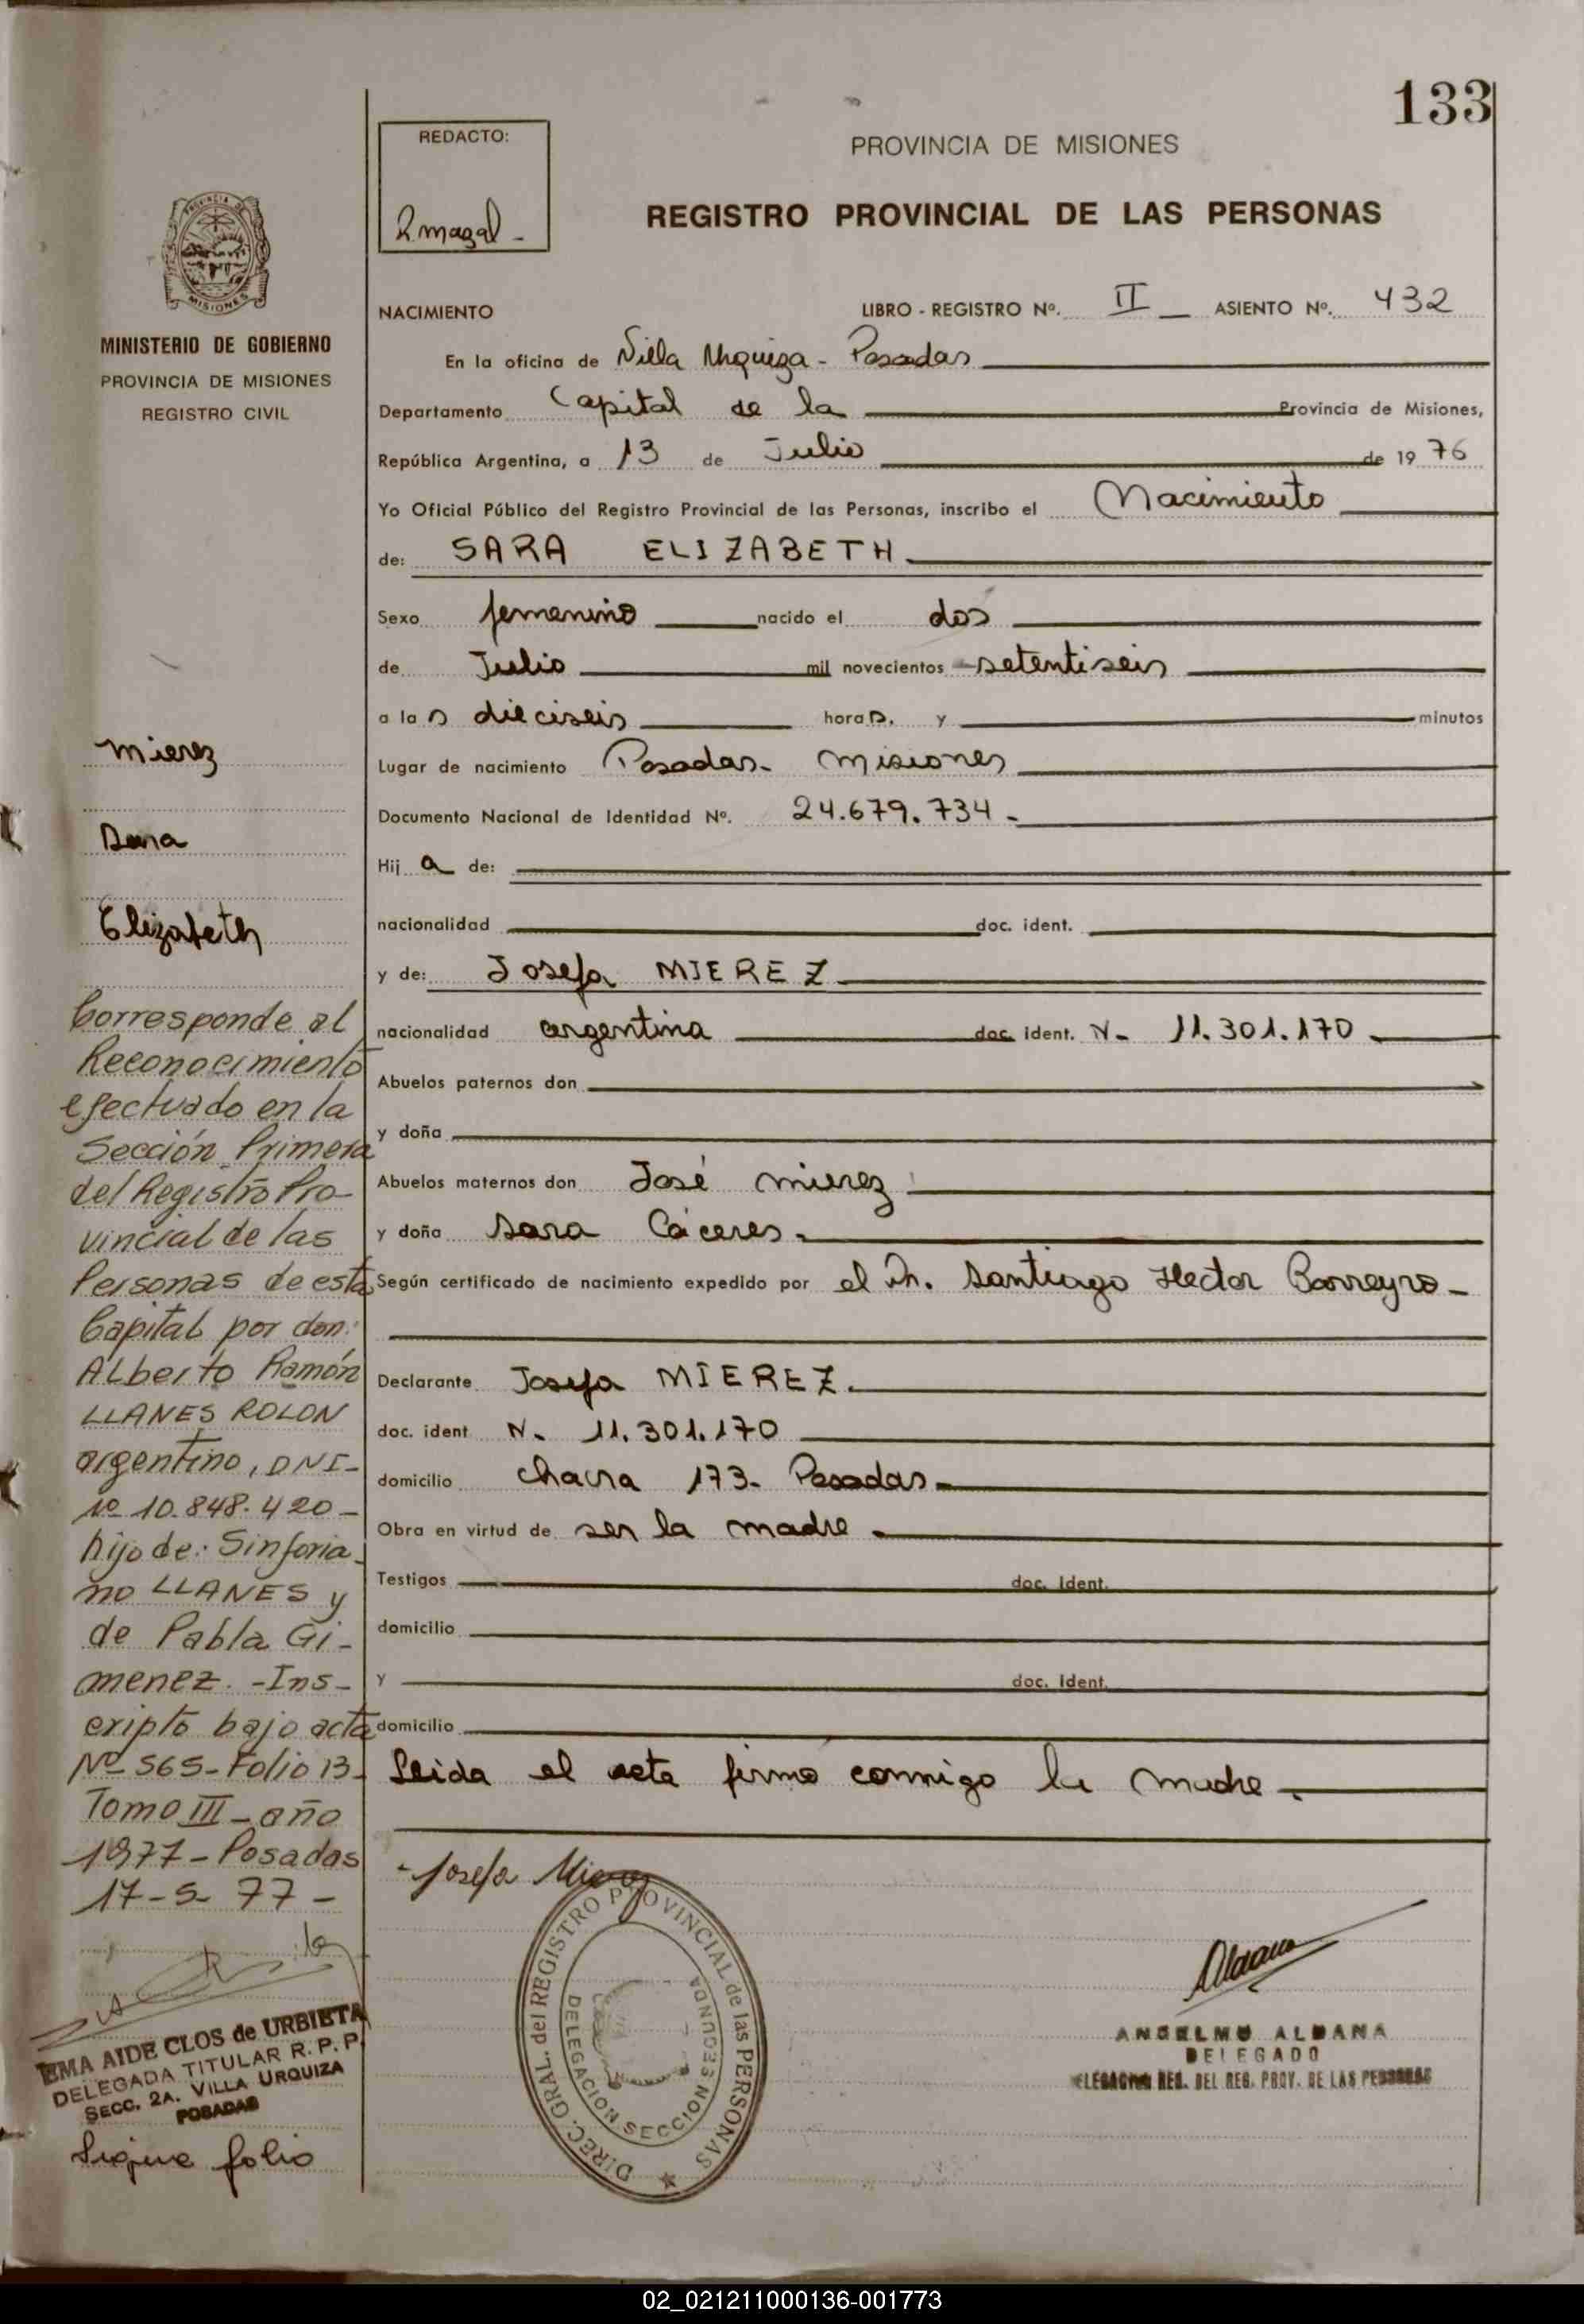 133
REDACTO:
PROVINCIA DE MISIONES
REGISTRO PROVINCIAL DE LAS PERSONAS
PROVINCIA DE
MISIONES
MINISTERIO DE GOBIERNO
PROVINCIA DE MISIONES
REGISTRO CIVIL
NACIMIENTO LIBRO - REGISTRO Nº. II ASIENTO Nº. 432
En la oficina de Villa Urquiza - Posadas
Departamento Capital de la Provincia de Misiones,
República Argentina, a 13 de Julio de 1976
Yo Oficial Público del Registro Provincial de las Personas, inscribo el Nacimiento
de: SARA ELIZABETH
Sexo femenino nacido el dos
de Julio mil novecientos setentiseis
a las dieciseis horas. y minutos
Lugar de nacimiento Posadas - Misiones
Documento Nacional de Identidad Nº. 24.679.734.-
Hij a de:
nacionalidad doc. ident.
y de: Josefa MIEREZ
nacionalidad argentina doc. ident. N- 11.301.170
Abuelos paternos don
y doña
Abuelos maternos don José Mierez
y doña Sara Cáceres.
Según certificado de nacimiento expedido por el Dr. Santiago Hector Barreyro-
Declarante Josefa MIEREZ.
doc. ident N- 11.301.170
domicilio chacra 173- Posadas-
Obra en virtud de ser la madre.
Testigos doc. Ident.
domicilio
y doc. Ident.
domicilio
Leida el acta firma conmigo la madre.
Josefa Mierez
DIREC. GRAL. del REGISTRO PROVINCIAL de las PERSONAS
DELEGACION SECCION SEGUNDA
ANSELMO ALDANA
DELEGADO
Mierez
Sara
Elizabeth
Corresponde al
Reconocimiento
efectuado en la
Sección Primera
del Registro Pro-
vincial de las
Personas de esta
Capital por don:
ALberto Ramón
LLANES ROLON
argentino, DNI-
Nº 10.848.420-
hijo de: Sinforia-
no LLANES y
de Pabla Gi-
menez. -Ins-
cripto bajo acta
Nº 565-Folio 13-
Tomo III-año
1977-Posadas
17-5-77-
EMA AIDE CLOS de URBIETA
DELEGADA TITULAR R. P. P.
SECC. 2A. VILLA URQUIZA
POSADAS
Sigue folio
02_021211000136-001773